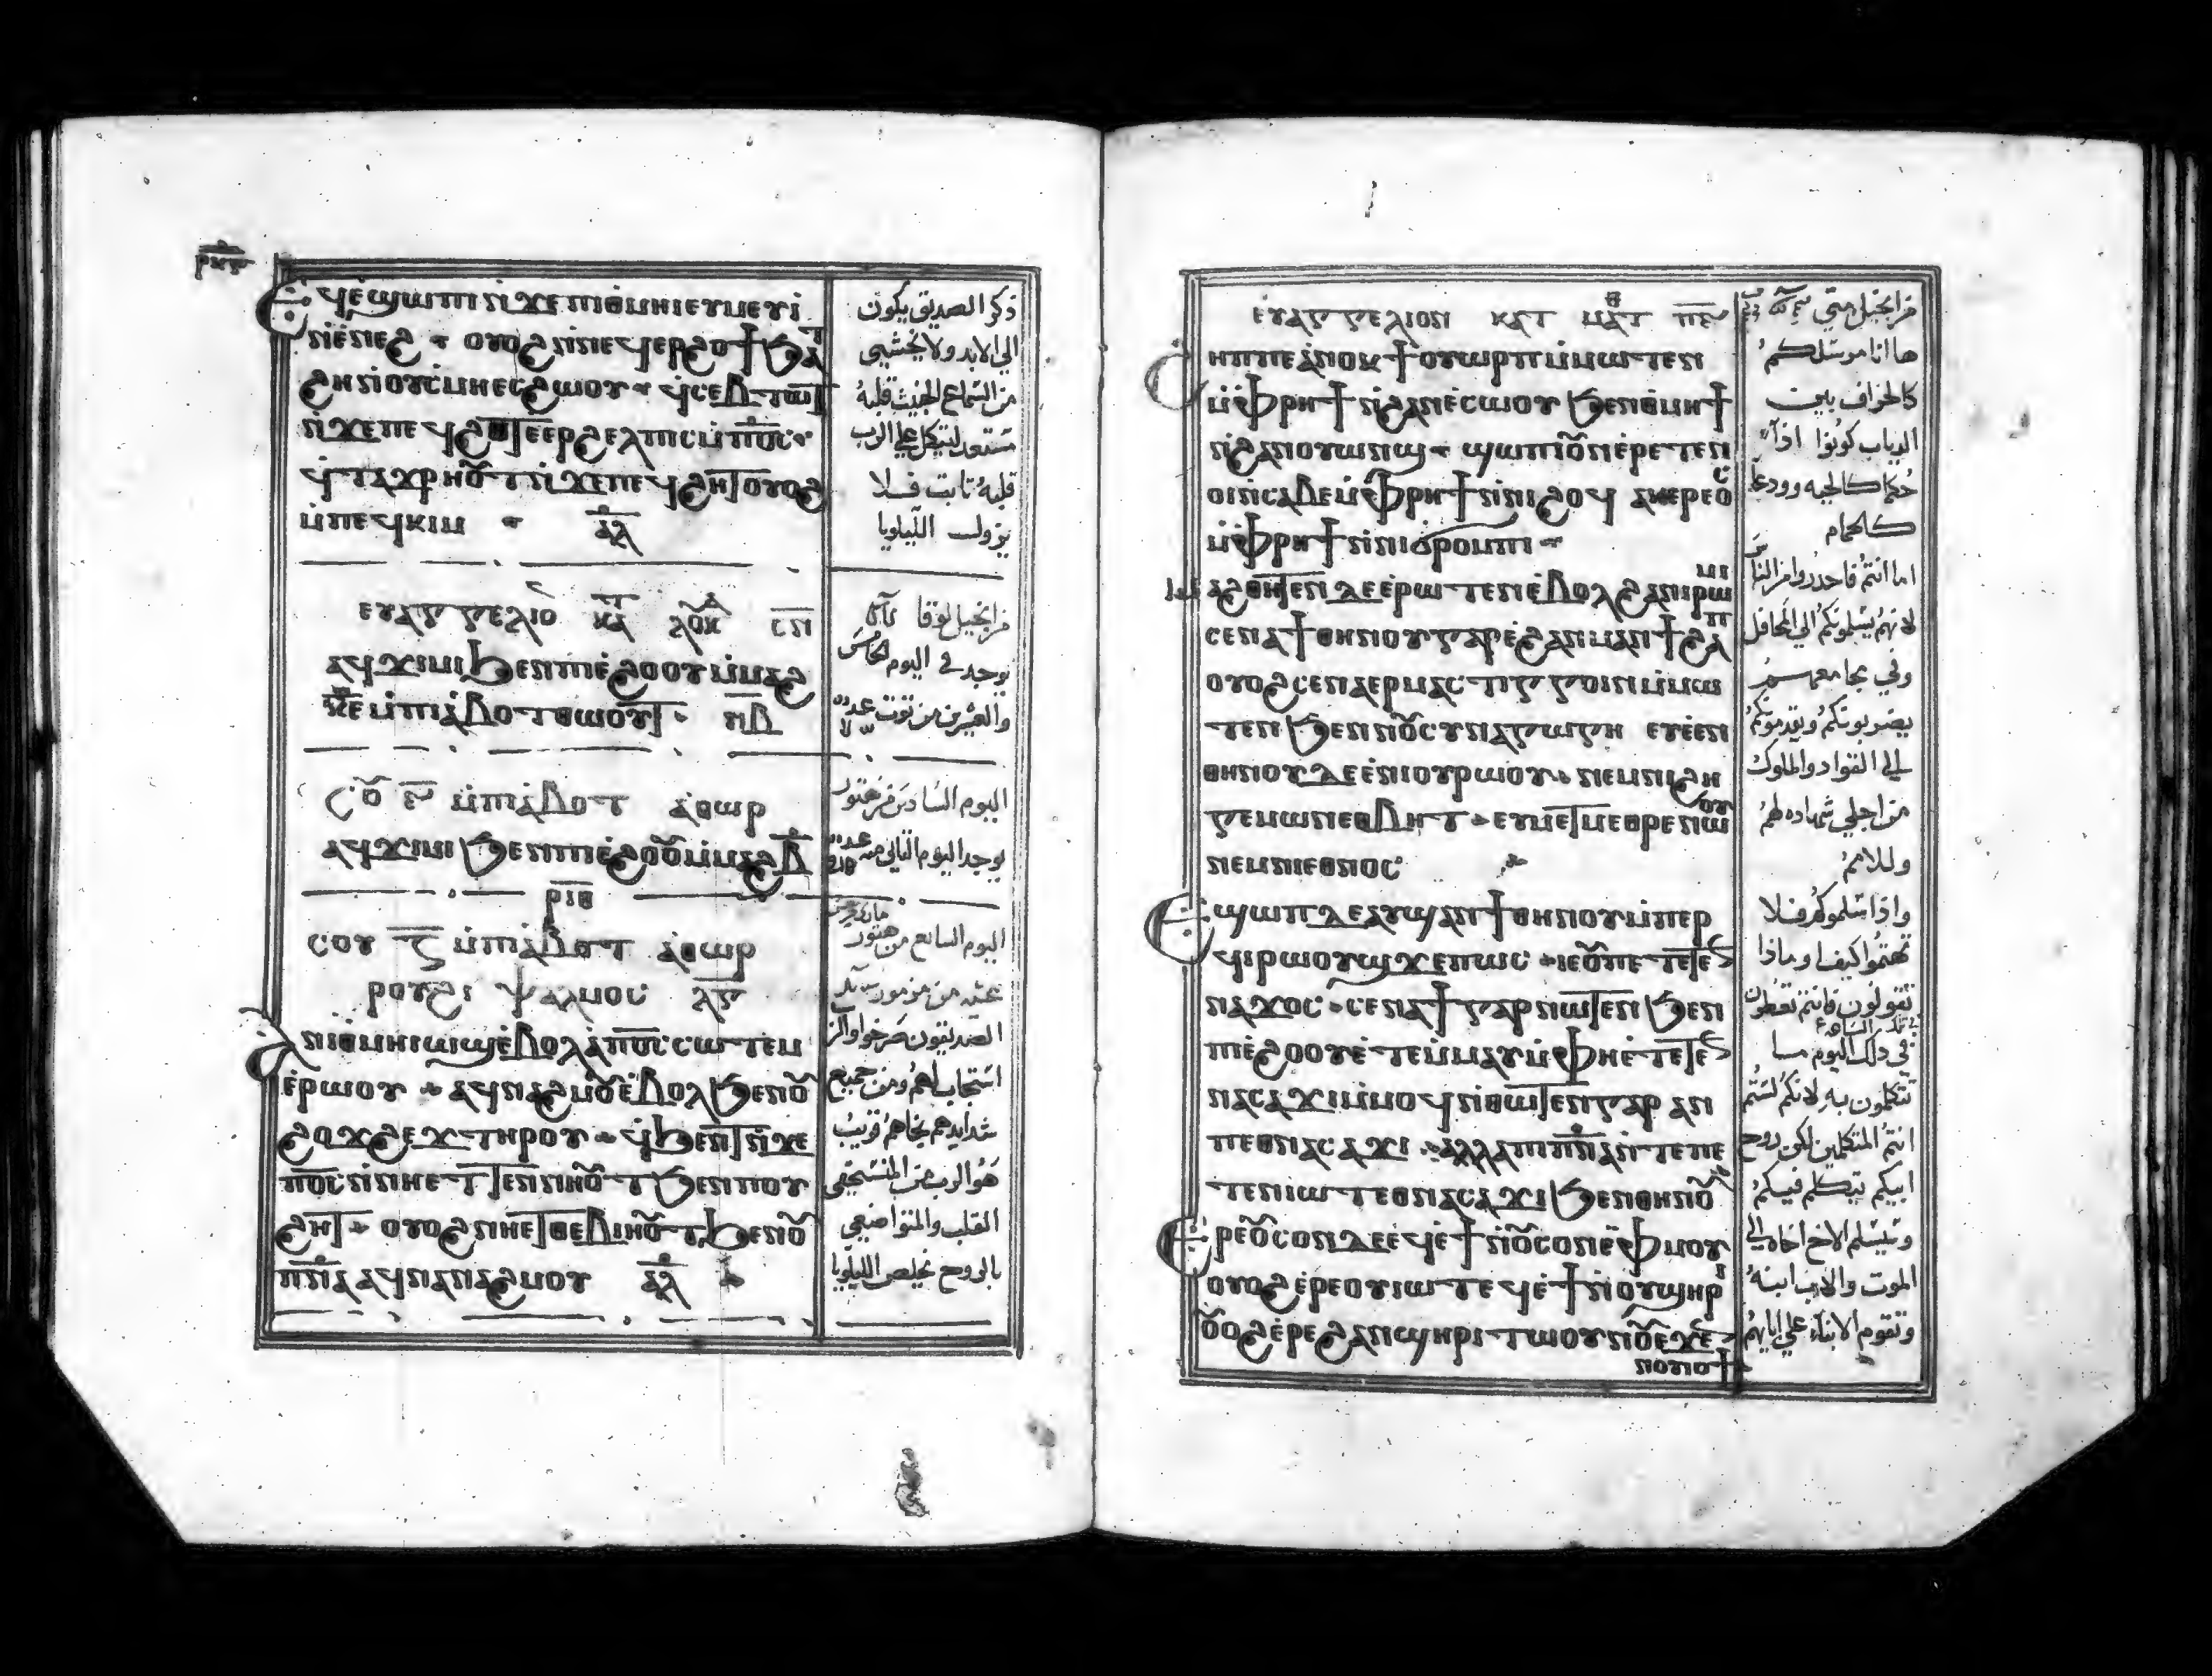 ⲉϥⲉ̀ϣⲱⲡⲓ ⲛ̀ϫⲉ ⲡⲓⲑⲙⲏⲓ ⲉⲩⲙⲉⲩⲓ̀
ⲛ̀ⲉ̀ⲛⲉϩ ⲟⲩⲟϩ ⲛ̀ⲛⲉϥⲉⲣϩⲟϯ ϧⲁⲧ
ϩⲏ ⲛ̀ⲟⲩⲥ̀ⲙⲏ ⲉⲥϩⲱⲟⲩ ϥ̀ⲥⲉⲃⲧⲱⲧ
ⲛ̀ϫⲉ ⲡⲉϥϩⲏⲧ ⲉⲉⲣϩⲉⲗⲡⲓⲥ ⲙ̀ⲡⲟ̅ⲥ̅
ϥ̀ⲧⲁϫⲣⲏⲟⲩⲧ ⲛ̀ϫⲉ ⲡⲉϥϩⲏⲧ ⲟⲩⲟϩ
ⲙ̀ⲡⲉϥⲕⲓⲙ ⲁ̅ⲗ̅
ⲉⲩⲁⲅⲅⲉⲗⲓⲟ ⲕⲁⲧ ⲗⲟⲩⲕ
ⲁϥⲭⲓⲙⲓ ϧⲉⲛ ⲡⲓⲉ̀ϩⲟⲟⲩ ⲙ̀ⲙⲁϩ
ⲕ̅ⲉ̅ ⲙ̀ⲡⲓⲁ̀ⲃⲟⲧ ⲑⲱⲟⲩⲧ
ⲥⲟⲩ ⲋ̅ ⲙ̀ⲡⲓⲁ̀ⲃⲟⲧ ⲁ̀ⲑⲱⲣ
ⲁϥⲭⲓⲙⲓ ϧⲉⲛ ⲡⲓⲉ̀ϩⲟⲟⲩ ⲙ̀ⲙⲁϩ ⲃ̅
ⲣ̅ⲓ̅ⲑ̅
ⲥⲟⲩ ⲍ̅ ⲙ̀ⲡⲓⲁ̀ⲃⲟⲧ ⲁ̀ⲑⲱⲣ
ⲣⲟⲩϩⲓ ⲯⲁⲗⲙⲟⲥ ⲗ̅ⲅ̅
ⲁ ⲛⲓⲑⲙⲏⲓ ⲱϣ ⲉ̀ⲃⲟⲗ ⲁ̀ ⲡⲟ̅ⲥ̅ ⲥⲱⲧⲉⲙ
ⲉ̀ⲣⲱⲟⲩ ⲁϥⲛⲁϩⲙⲟⲩ ⲉ̀ⲃⲟⲗ ϧⲉⲛ ⲟⲩ
ϩⲟϫϩⲉϫ ⲧⲏⲣⲟⲩ ϥ̀ϧⲉⲛⲧ ⲛ̀ϫⲉ
ⲡⲟ̅ⲥ̅ ⲛ̀ⲛⲏ ⲉⲧⲧⲉⲛⲛⲏⲟⲩⲧ ϧⲉⲛ ⲡⲟⲩ
ϩⲏⲧ ⲟⲩⲟϩ ⲛⲏ ⲉⲧⲑⲉⲃⲓⲏⲟⲩⲧ ϧⲉⲛ ⲟⲩ
ⲡ̅ⲛ̅ⲁ̅ ⲁϥⲛⲁⲛⲁϩⲙⲟⲩ ⲁ̅ⲗ̅
ذكر الصديق يكون
الي الابد ولا يخشي
من السماع الخبيث قلبه
مستعد ليتكل علي الرب
قلبه ثابت فلا
يزول الليلويا
من انجيل لوقا
يوجد في اليوم الخامس
والعشرين من توت
اليوم السادس من هتور
يوجد اليوم الثاني منه
اليوم السابع من هتور
عشيه من مزمور
الصديقون صرخوا والرب
استجاب لهم ومن جميع
شدايدهم نجاهم قريب
هو الرب من المنسحقي
القلب والمتواضعي
بالروح يخلص الليلويا
ⲉⲩⲁⲅⲅⲉⲗⲓⲟⲛ ⲕⲁⲧ ⲙⲁⲧ
ϩⲏⲡⲡⲉ ⲁ̀ⲛⲟⲕ ϯⲟⲩⲱⲣⲡ ⲙ̀ⲙⲱⲧⲉⲛ
ⲙ̀ⲫⲣⲏϯ ⲛ̀ϩⲁⲛⲉ̀ⲥⲱⲟⲩ ϧⲉⲛ ⲑⲙⲏϯ
ⲛ̀ϩⲁⲛⲟⲩⲱⲛϣ ϣⲱⲡⲓ ⲟⲩⲛ ⲉ̀ⲣⲉⲧⲉⲛ
ⲟⲓ ⲛ̀ⲥⲁⲃⲉ ⲙ̀ⲫⲣⲏϯ ⲛ̀ⲛⲓϩⲟϥ ⲁⲕⲉⲣⲉⲟⲥ
ⲙ̀ⲫⲣⲏϯ ⲛ̀ⲛⲓϭⲣⲟⲙⲡⲓ
ⲙⲁϩⲑⲏⲧⲉⲛ ⲇⲉ ⲉ̀ⲣⲱⲧⲉⲛ ⲉ̀ⲃⲟⲗ ϩⲁ ⲛⲓⲣⲱⲙⲓ
ⲥⲉⲛⲁϯ ⲑⲏⲛⲟⲩ ⲅⲁⲣ ⲉ̀ϩⲁⲛⲙⲁⲛϯϩⲁⲡ
ⲟⲩⲟϩ ⲥⲉⲛⲁⲉⲣⲙⲁⲥⲧⲓⲅⲅⲟⲓⲛ ⲙ̀ⲙⲱ
ⲧⲉⲛ ϧⲉⲛ ⲛⲟⲩⲥⲩⲛⲁⲅⲱⲅⲏ ⲉⲩⲉ̀ⲉⲛ
ⲑⲏⲛⲟⲩ ⲇⲉ ⲉ̀ⲛⲓⲟⲩⲣⲱⲟⲩ ⲛⲉⲙ ⲛⲓϩⲏ
ⲅⲉⲙⲱⲛ ⲉⲑⲃⲏⲧ ⲉⲩⲙⲉⲧⲙⲉⲑⲣⲉ ⲛⲱⲟⲩ
ⲛⲉⲙ ⲛⲓⲉⲑⲛⲟⲥ
ⲉϣⲱⲡ ⲇⲉ ⲁⲩϣⲁⲛϯ ⲑⲏⲛⲟⲩ ⲙ̀ⲡⲉⲣ
ϥⲓⲣⲱⲟⲩϣ ϫⲉ ⲡⲱⲥ ⲓⲉ ⲟⲩ ⲡⲉⲧⲉⲧⲉⲛ
ⲛⲁϫⲟⲥ ⲥⲉⲛⲁϯ ⲅⲁⲣ ⲛⲱⲧⲉⲛ ϧⲉⲛ
ⲡⲓⲉ̀ϩⲟⲟⲩ ⲉ̀ⲧⲉⲙⲙⲁⲩ ⲙ̀ⲫⲏ ⲉ̀ⲧⲉⲧⲉⲛ
ⲛⲁⲥⲁϫⲓ ⲙ̀ⲙⲟϥ ⲛ̀ⲑⲱⲧⲉⲛ ⲅⲁⲣ ⲁⲛ
ⲡⲉⲑⲛⲁⲥⲁϫⲓ ⲁⲗⲗⲁ ⲡⲓⲡ̅ⲛ̅ⲁ̅ ⲛ̀ⲧⲉ ⲡⲉ
ⲧⲉⲛⲓⲱⲧ ⲉⲑⲛⲁⲥⲁϫⲓ ϧⲉⲛ ⲑⲏⲛⲟⲩ
ⲉⲣⲉ ⲟⲩⲥⲟⲛ ⲇⲉ ⲉϥⲉ̀ϯ ⲛ̀ⲟⲩⲥⲟⲛ ⲉ̀ⲫⲙⲟⲩ
ⲟⲩⲟϩ ⲉ̀ⲣⲉ ⲟⲩⲓⲱⲧ ⲉϥⲉ̀ϯ ⲛ̀ⲟⲩϣⲏⲣⲓ
ⲟⲩⲟϩ ⲉ̀ⲣⲉ ϩⲁⲛϣⲏⲣⲓ ⲧⲱⲟⲩⲛⲟⲩ ⲉϫⲉⲛ
ⲛⲟⲩⲓⲟϯ
من انجيل متي
ها انا مرسلكم
كالخراف بين
الدياب كونوا اذا
حكما كالحيه وودعا
كالحمام
اما انتم فاحدروا من الناس
لانهم يسلمونكم الي المحافل
وفي مجامعهم
يضربونكم ويقدمونكم
الي القواد والملوك
من اجلي شهاده لهم
وللامم
واذا اسلموكم فلا
تهتموا كيف او ماذا
تقولون فانتم تعطون
في تلك الساعه
في ذلك اليوم ما
تتكلمون به لانكم لستم
انتم المتكلمين لكن روح
ابيكم يتكلم فيكم
وسيسلم الاخ اخاه الي
الموت والاب ابنه
وتقوم الابناء علي ابايهم